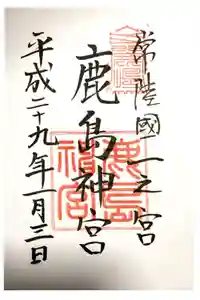 常陸國一之宮
鹿島神宮
平成二十九年一月三日
鹿島神宮